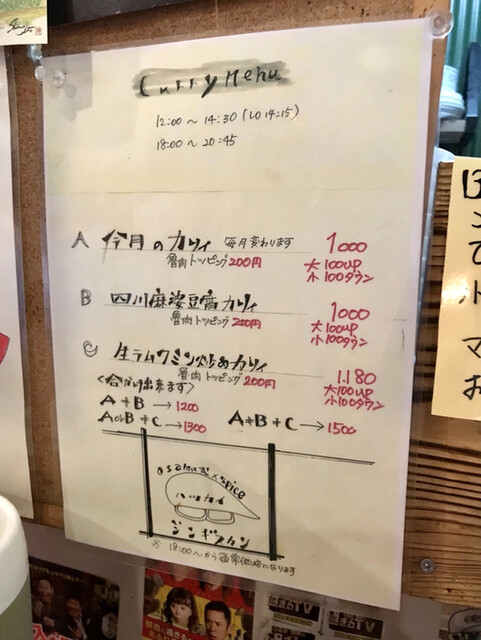 Curry Menu
12:00～14:30 (LO 14:15)
18:00～20:45
A 今月のカリィ 毎月変わります 1000
魯肉トッピング200円 大100UP
小100ダウン
B 四川麻婆豆腐カリィ 1000
魯肉トッピング200円 大100UP
小100ダウン
C 生ラムクミン炒めカリィ 1.180
魯肉トッピング200円 大100UP
小100ダウン
<合がけ出来ます>
A+B→1200
AorB+C→1300 A+B+C→1500
spice
ハッカイ
ジンギスカン
※18:00～から通常価格になります